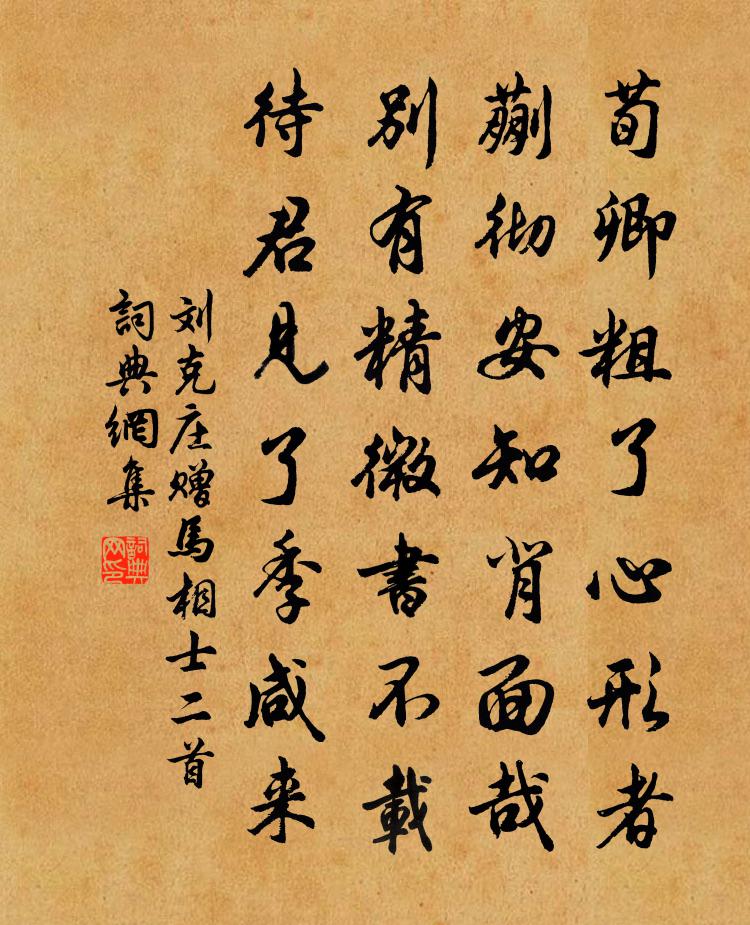 荀卿粗了心形者
蒯彻安知肖面哉
别有精微書不載
待君見了季咸来
刘克庄赠馬相士二首
詞典網集
詞典网印